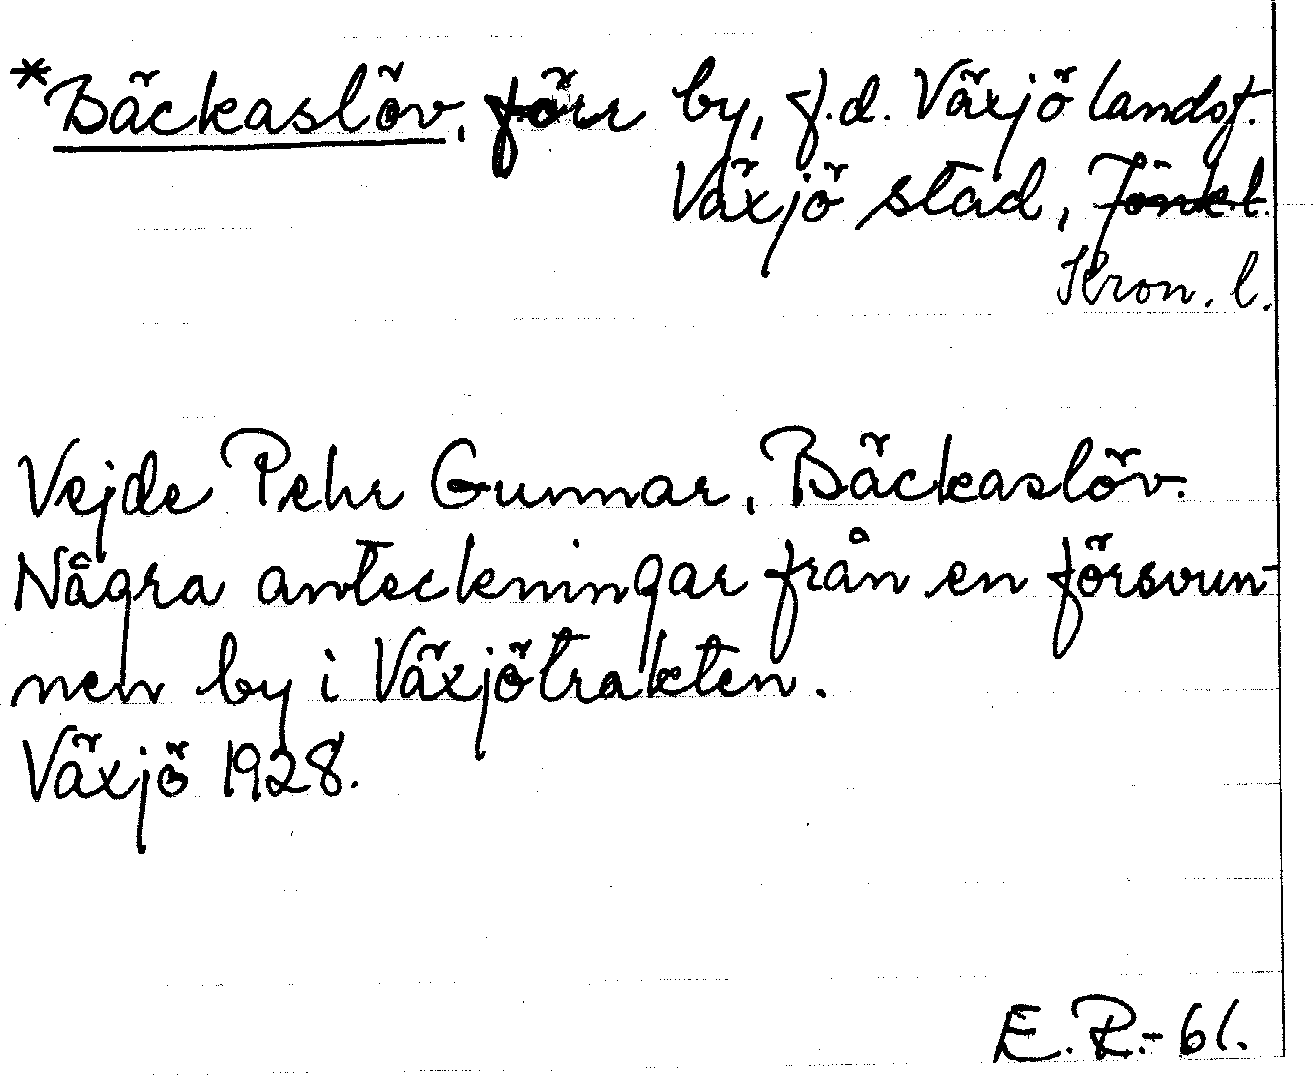 *Bäckaslöv, förr by, f.d. Växjö landsf.
Växjö stad, Jönk.l.
Kron. l.
Vejde Pehr Gunnar, Bäckaslöv.
Några anteckningar från en försvun-
nen by i Växjötrakten.
Växjö 1928.
E.R.-61.